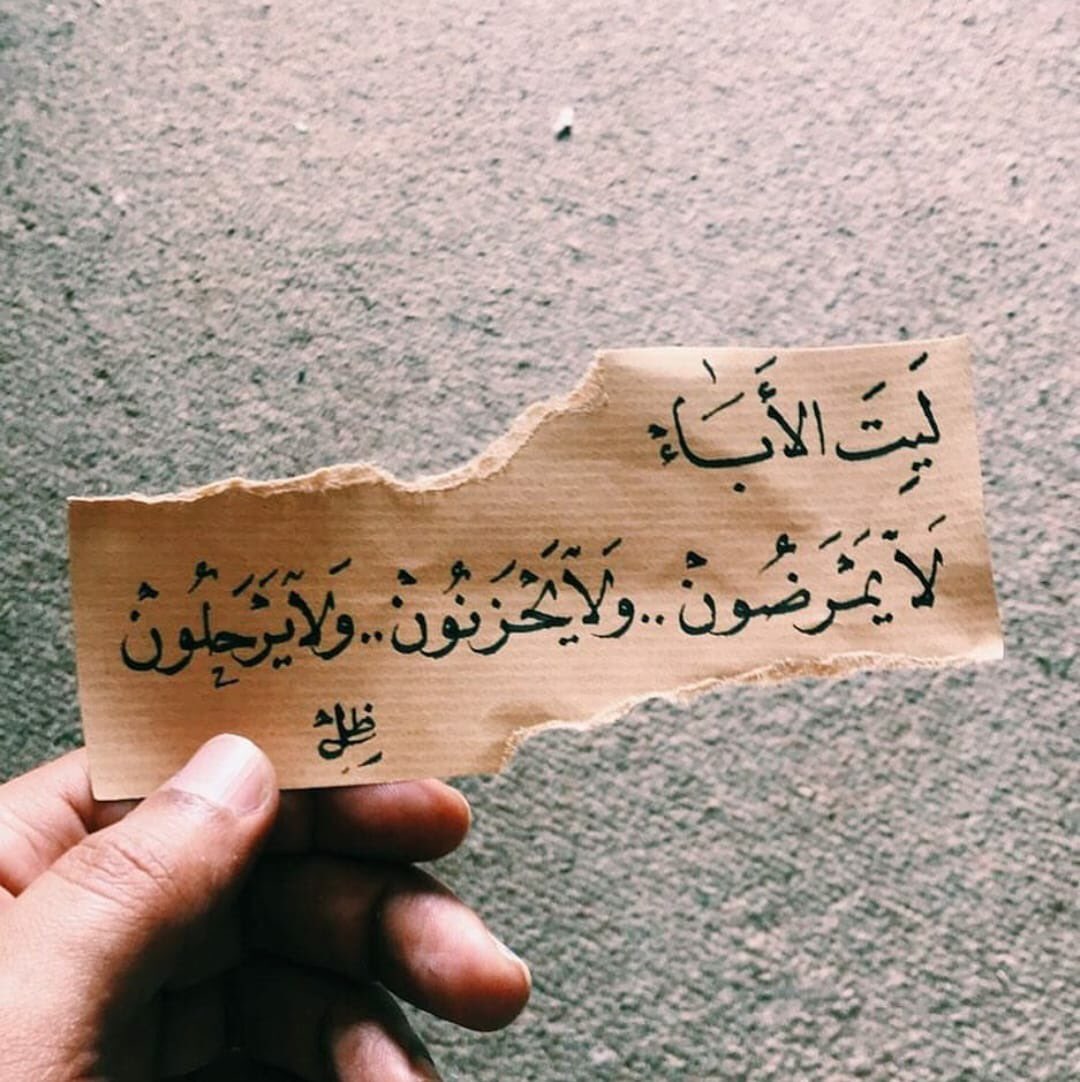 لَيتَ الأَبَاء
لَا يَمْرَضُونْ .. وَلَا يَحْزَنُونْ .. وَلَا يَرْحَلُونْ
ظِلْ